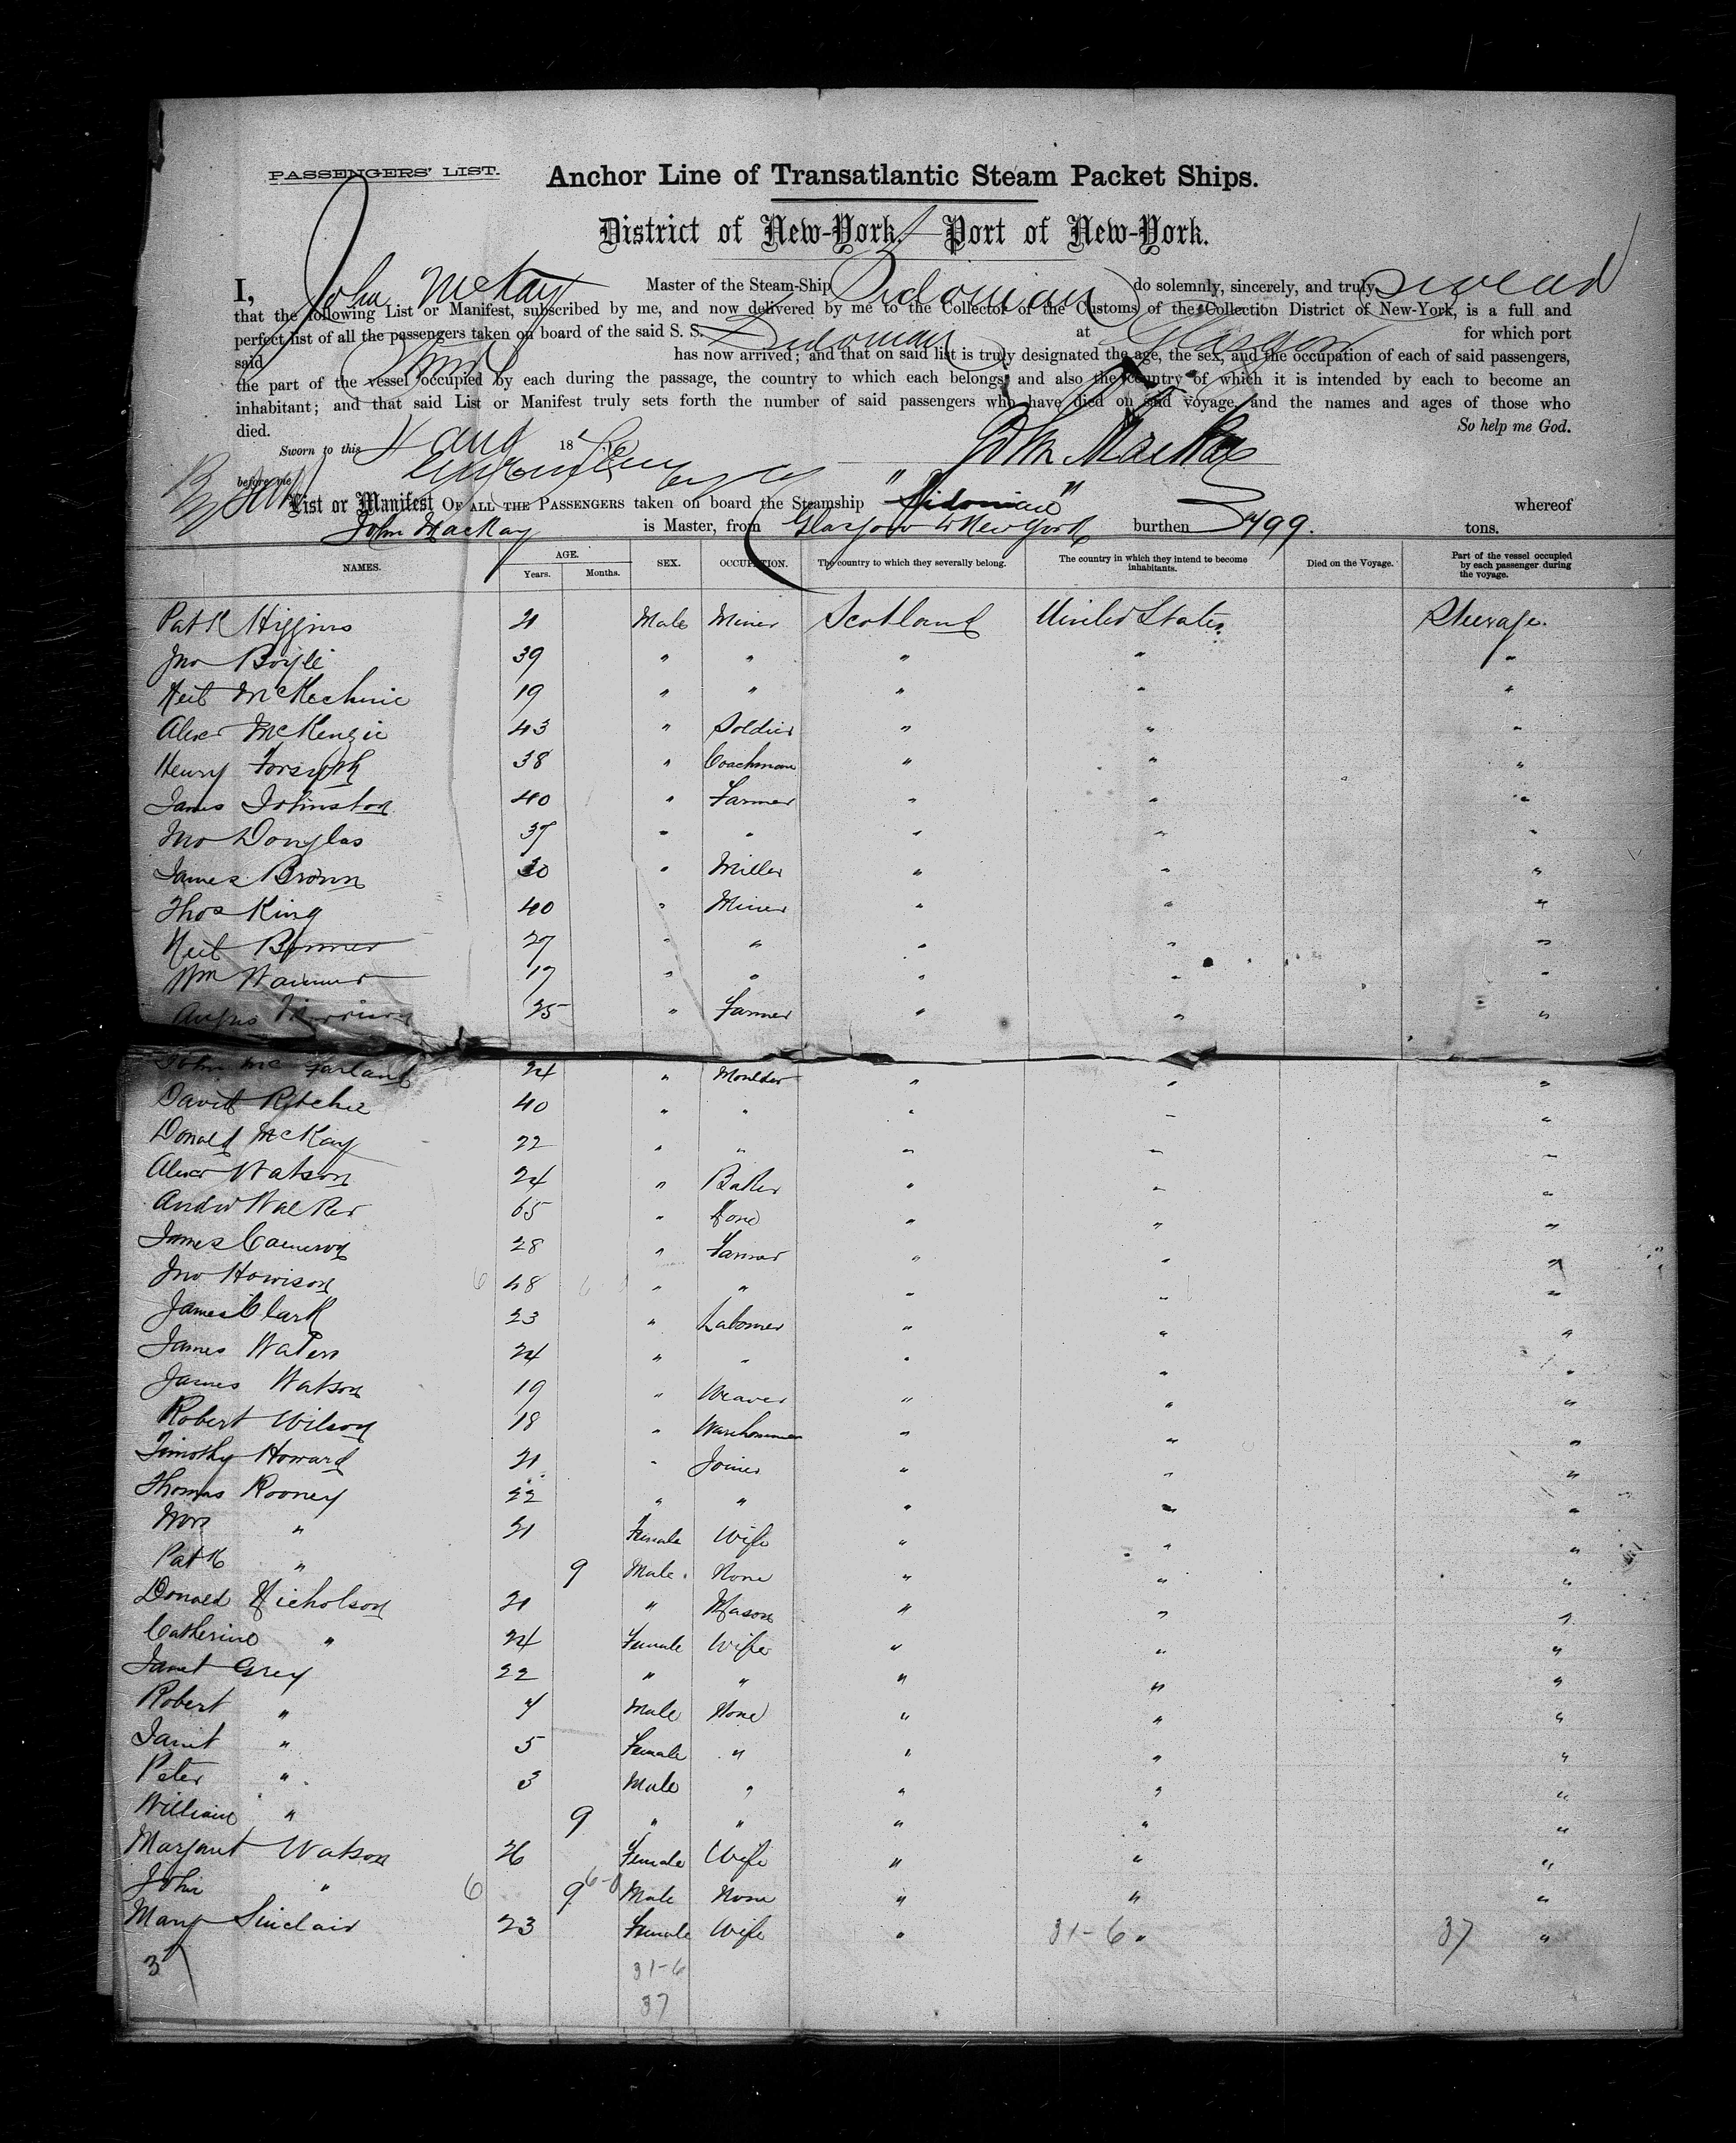 PASSENGERS' LIST.
Anchor Line of Transatlantic Steam Packet Ships.
District of New-York, Port of New-York.
I, John McKay Master of the Steam-Ship Sidonian do solemnly, sincerely, and truly swear
that the following List or Manifest, subscribed by me, and now delivered by me to the Collector of the Customs of the Collection District of New-York, is a full and
perfect list of all the passengers taken on board of the said S. S. Sidonian at Glasgow for which port
said Ship has now arrived; and that on said list is truly designated the age, the sex, and the occupation of each of said passengers,
the part of the vessel occupied by each during the passage, the country to which each belongs, and also the country of which it is intended by each to become an
inhabitant; and that said List or Manifest truly sets forth the number of said passengers who have died on said voyage, and the names and ages of those who
died. So help me God.
Sworn to this 4 Aug 18 John MacKay
before me
List or Manifest OF ALL THE PASSENGERS taken on board the Steamship "Sidonian" whereof
John MacKay is Master, from Glasgow to New York burthen tons.
NAMES. AGE. Years. Months. SEX. OCCUPATION. The country to which they severally belong. The country in which they intend to become inhabitants. Died on the Voyage. Part of the vessel occupied by each passenger during the voyage.
Patk Higgins 21 Male Miner Scotland United States Steerage.
Jno Boyle 39 " " " " "
Neil McKechnie 19 " " " " "
Alexr McKenzie 43 " Soldier " " "
Henry Forsyth 38 " Coachman " " "
James Johnston 40 " Farmer " " "
Jno Douglas 37 " " " " "
James Brown 30 " Miller " " "
Thos King 40 " Miner " " "
Neil Bonner 27 " " " " "
Wm 17 " " " " "
Angus 25 " Farmer " " "
John McFarland 24 " Moulder " " "
David Ritchie 40 " " " " "
Donald McKay 22 " " " " "
Alexr Watson 24 " Baker " " "
Andw Walker 65 " None " " "
James Cameron 28 " Farmer " " "
Jno Howison 48 " " " " "
James Clark 23 " Labourer " " "
James Waters 24 " " " " "
James Watson 19 " Weaver " " "
Robert Wilson 18 " Warehouseman " " "
Timothy Howard 21 " Joiner " " "
Thomas Rooney 22 " " " " "
Mrs " 21 Female Wife " " "
Patk " 9 Male None " " "
Donald Nicholson 21 " Mason " " "
Catherine " 24 Female Wife " " "
Janet Grey 22 " " " " "
Robert " 7 Male None " " "
Janet " 5 Female " " " "
Peter " 3 Male " " " "
William " 9 " " " " "
Margaret Watson 26 Female Wife " " "
John " 6 9 6-0 Male None " " "
Mary Sinclair 23 Female Wife " 31-6 " 37 "
31-6
37